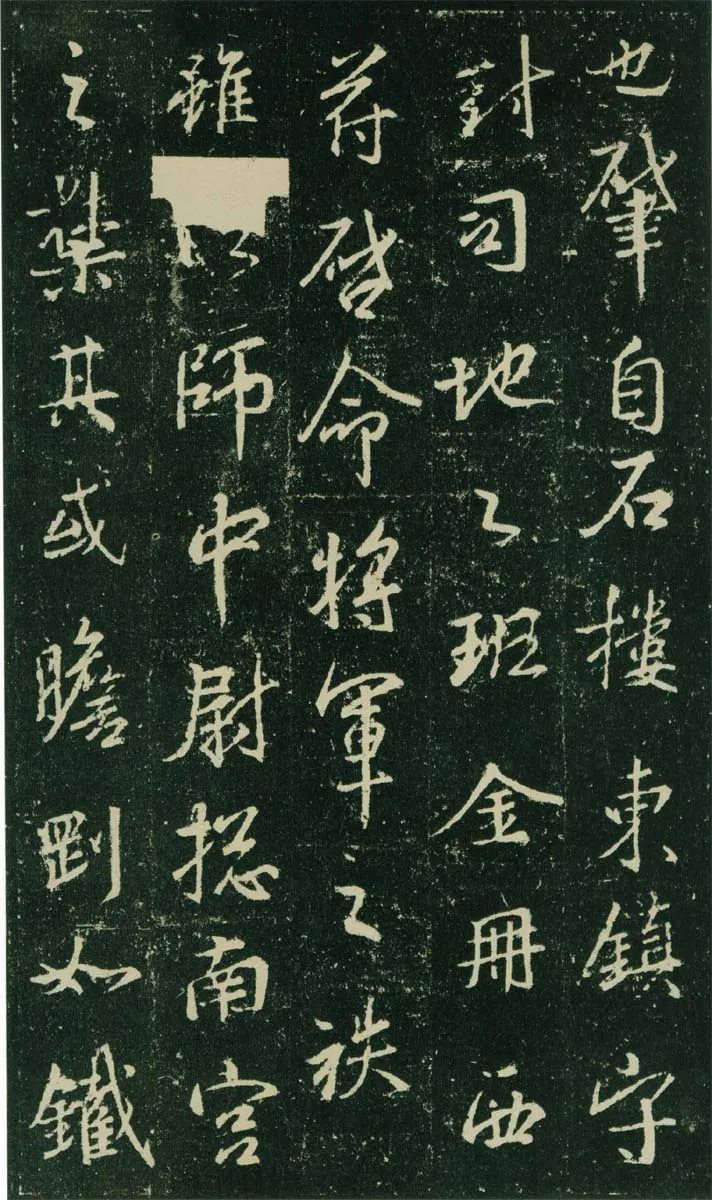 也肇自石樓東鎮守
封司地之班金冊西
符啓命將軍之祑
雖以師中尉揔南宮
之禁其或瞻剛如鐵